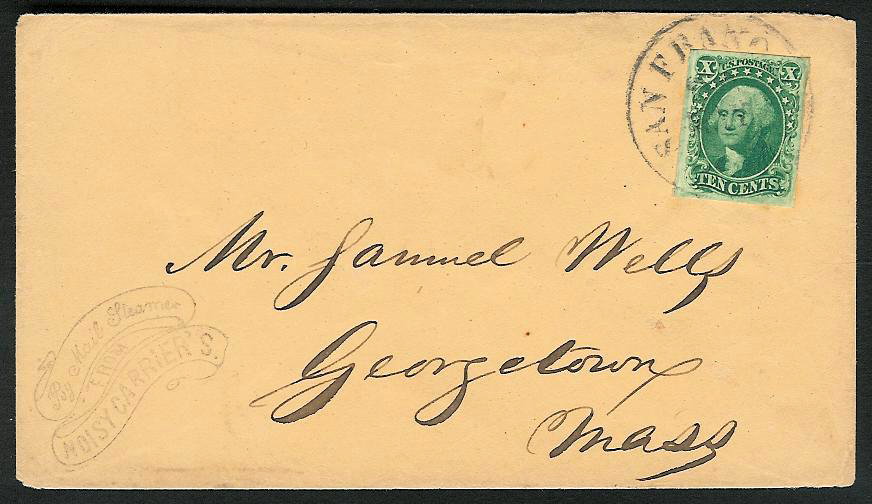 SAN FRANC
X U.S. POSTAGE X
TEN CENTS
Mr. Samuel Wells
Georgetown
Mass
By Mail Steamer
FROM
NOISY CARRIER'S.